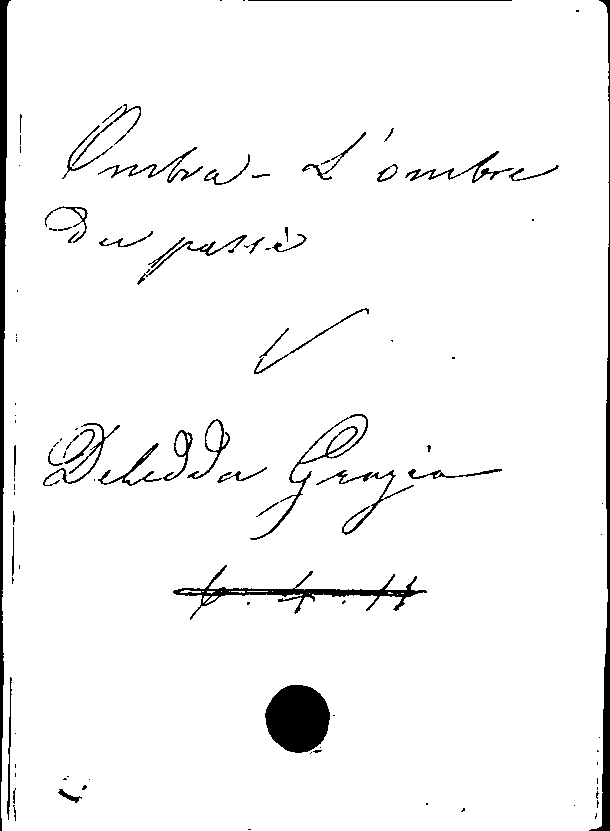 Ombra - L'ombre
du passè
Deledda Grazia
6. 4. 11